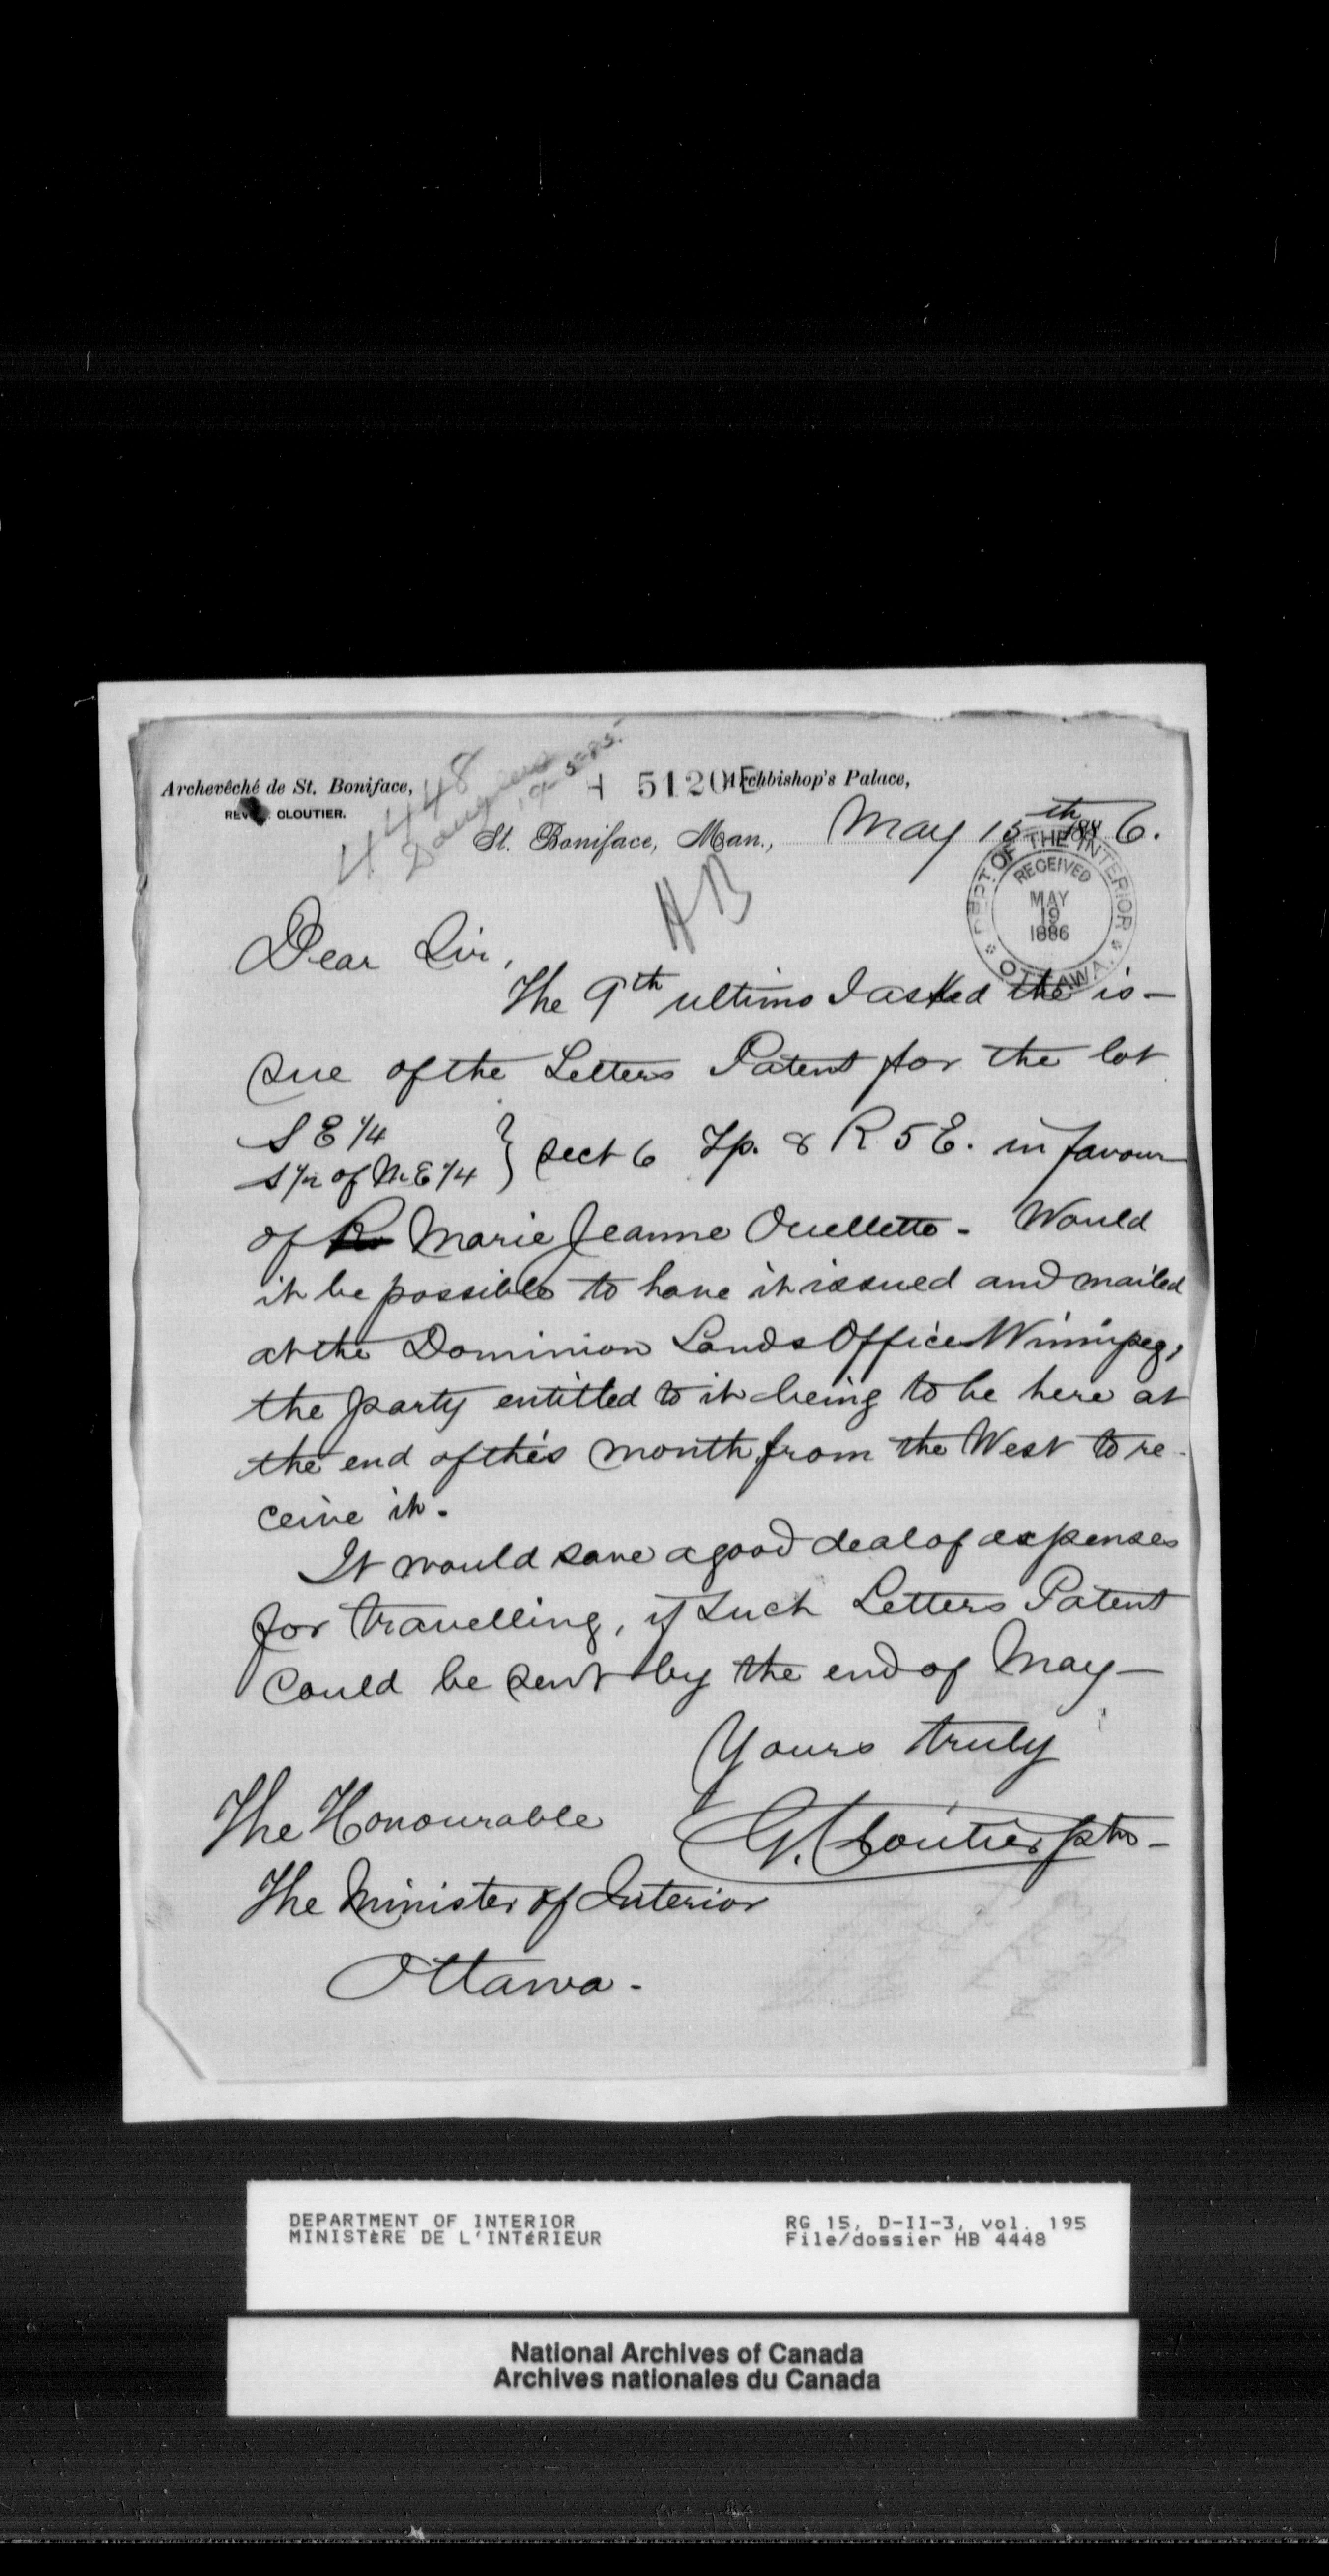 Archevêché de St. Boniface,
REV. G. CLOUTIER.
4448
H 5120E
Archbishop's Palace,
St. Boniface, Man., May 15th 1886.
HB
DEPT. OF THE INTERIOR
RECEIVED
MAY
19
1886
OTTAWA.
Dear Sir,
The 9th ultimo I asked the is-
sue of the Letters Patent for the lot
S E 1/4
S 1/2 of N.E 1/4 } sect 6 Tp. 8 R 5 E. in favour
of Marie Jeanne Ouellette - Would
it be possible to have it issued and mailed
at the Dominion Lands Office Winnipeg,
the party entitled to it being to be here at
the end of this month from the West to re-
ceive it.
It would save a good deal of expenses
for travelling, if such Letters Patent
could be sent by the end of May -
Yours truly
G. Cloutier ptre -
The Honourable
The Minister of Interior
Ottawa -
DEPARTMENT OF INTERIOR
MINISTÈRE DE L'INTÉRIEUR
RG 15, D-II-3, vol. 195
File/dossier HB 4448
National Archives of Canada
Archives nationales du Canada